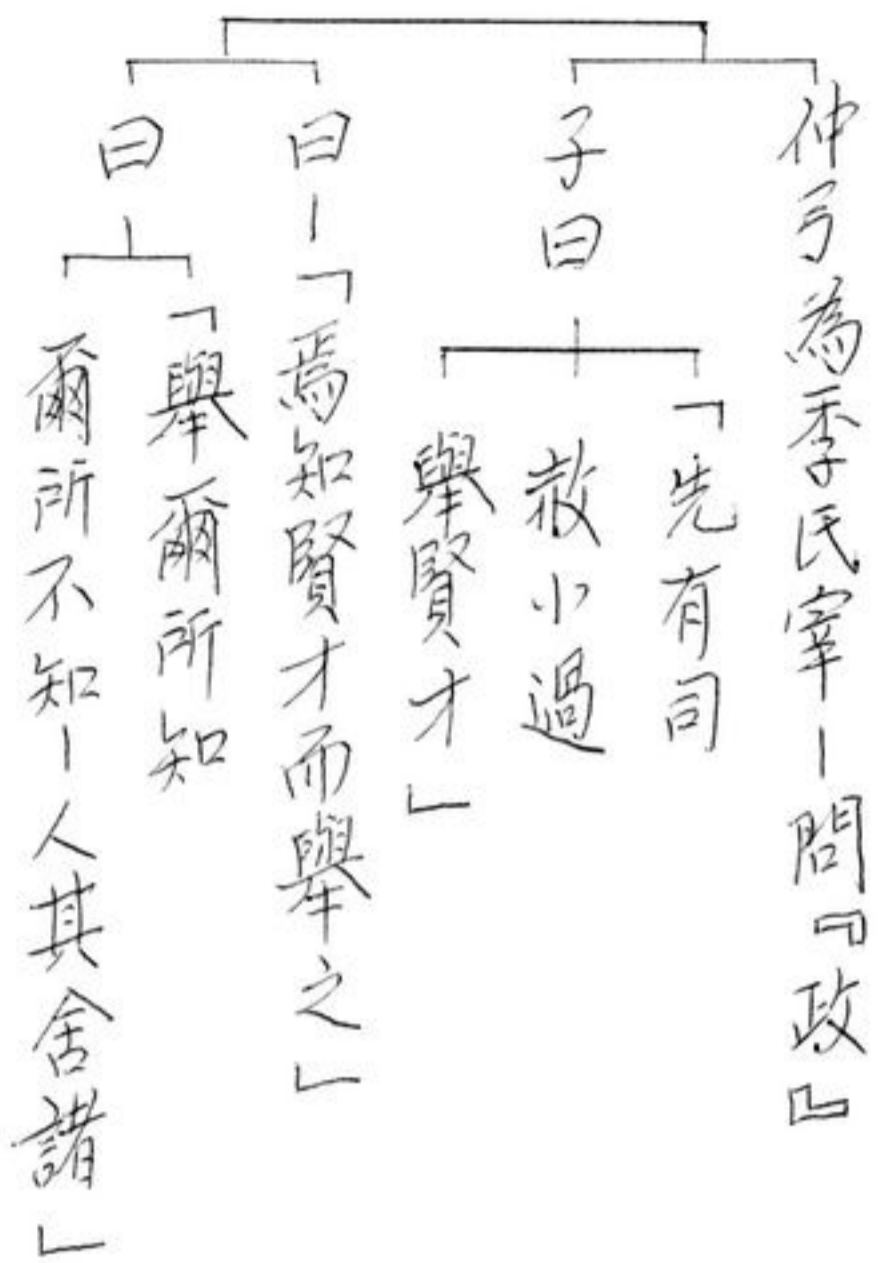 仲弓為季氏宰－問『政』
子曰
「先有司
赦小過
舉賢才」
曰－「焉知賢才而舉之」
曰－
「舉爾所知
爾所不知－人其舍諸」